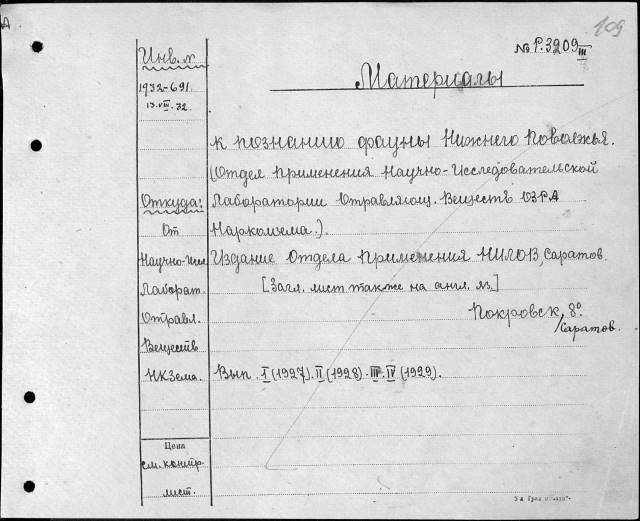 109
№ Р.3209 III
Материалы
к познанию фауны Нижнего Поволжья.
(Отдел Применения Научно-Исследовательской
Лаборатории Отравляющ. Веществ ОЗРА
Наркомзема.).
Издание Отдела Применения НИЛОВ, Саратов.
[Загл. лист также на англ. яз.]
Покровск, 8º
/Саратов.
Вып. I (1927). II (1928). III. IV (1929).
Инв. №
1932-691.
13.VIII.32.
Откуда:
От
Научно-Иссл
Лаборат.
Отравл.
Веществ
НКЗема.
Цена
см. контр.
лист.